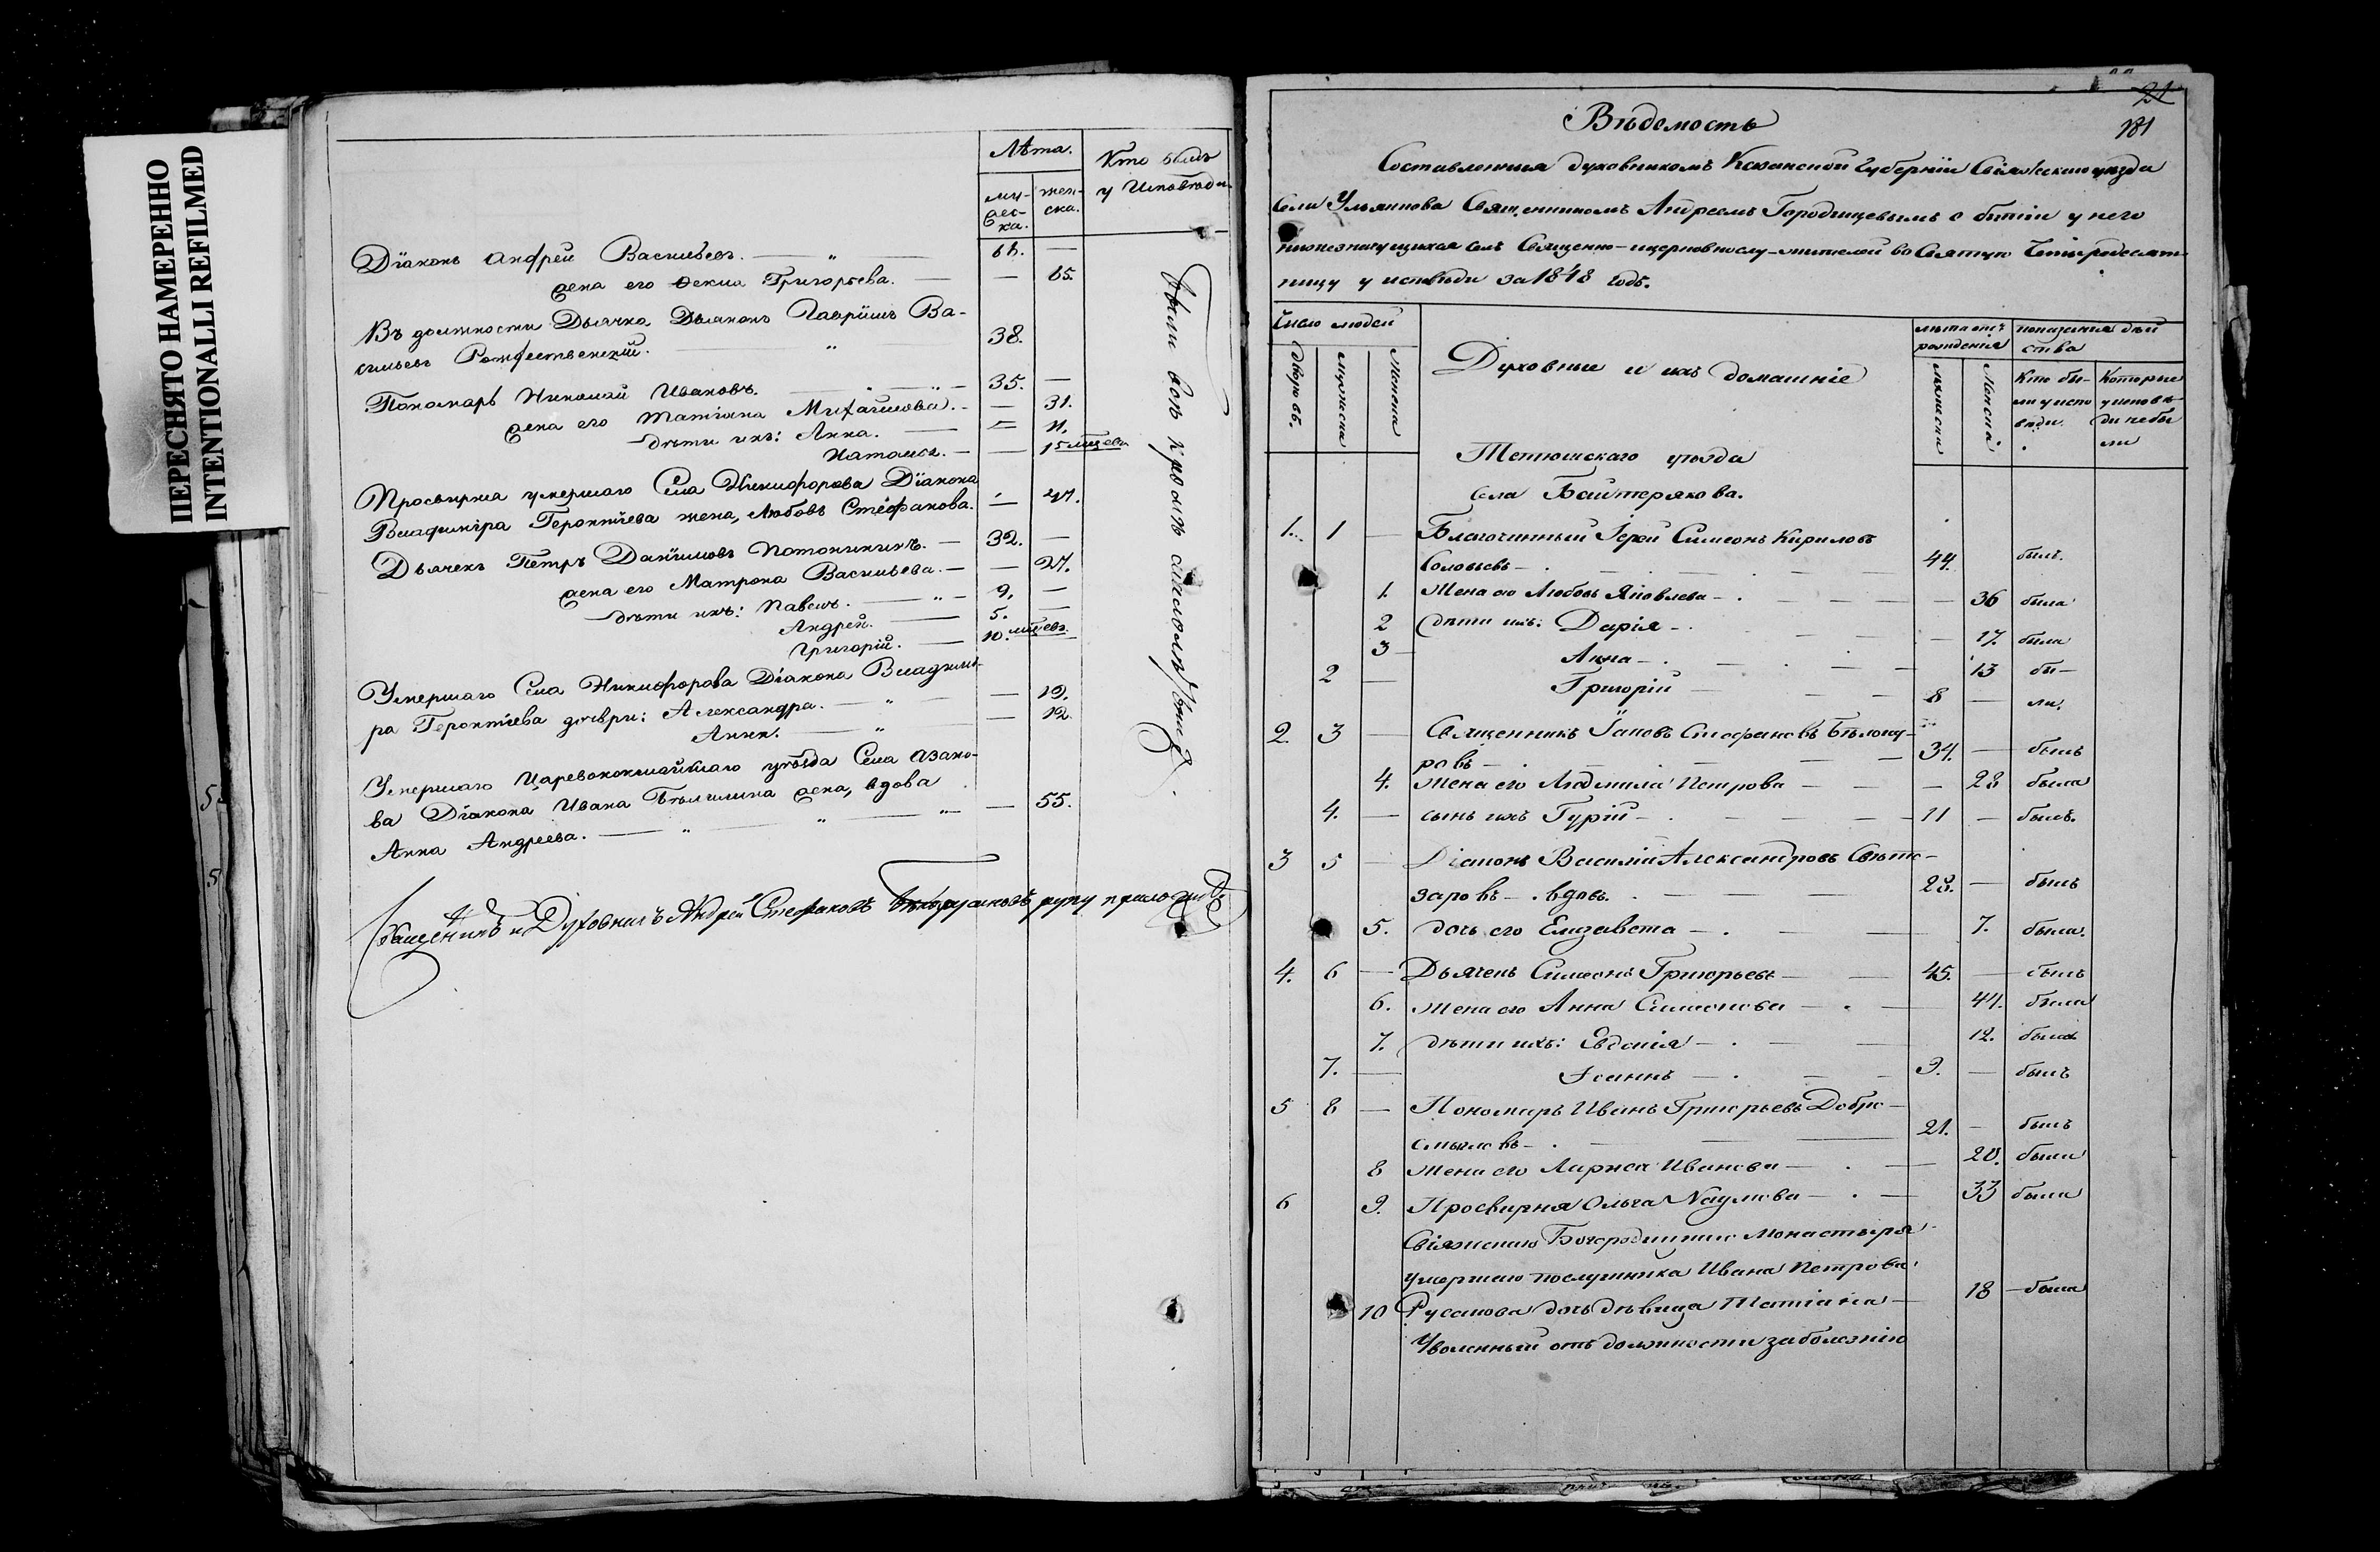 ПЕРЕСНЯТО НАМЕРЕННО
INTENTIONALLI REFILMED
Лѣта.
Кто былъ
у Исповѣди.
му-
жес-
ка.
жен-
ска.
Дїаконъ Андрей Васильевъ. — „ — —
жена его Ѳекла Григорьева. — — 65.
Въ должности Дьячка, Дьяконъ Гаврїилъ Ва-
сильевъ Рождественскїй. — „ — 38.
Пономарь Николай Ивановъ. — „ — „ — 35. —
жена его Татїана Михайлова. — — 31.
дѣти ихъ: Анна. — — 11.
Наталья. — — 1 5 мцевъ
Просвирня умершаго Села Никифорова Дїакона
Владимїра Геронтїева жена, Любовь Стефанова. — 47.
Дьячекъ Петръ Данїиловъ — 32. —
жена его Матрона Васильева. — — 27.
дѣти ихъ: Павелъ. — „ — 9. —
Андрей. — 5. —
Григорїй. — 10. мцевъ.
Умершаго Села Никифорова Дїакона Владими-
ра Геронтїева дочери: Александра. — „ — — 19.
Анна. — „ — 12.
Умершаго Царевококшайскаго уѣзда Села Азяко-
ва Дїакона Ивана жена, вдова
Анна Андреева. — „ — „ — „ — — 55.
Священникъ и Духовникъ Андрей Стефановъ руку приложилъ
21
181
Вѣдомость
Составленная духовникомъ Казанской Губернїи Свїяжскаго уѣзда
Села Ульянкова Священникомъ Андреемъ Городищевымъ о бытїи у него
нижезначущихся селъ Священно-и церковнослу-жителей во Святую Четыредесят-
ницу у исповѣди за 1848 годъ.
Число людей
лѣта отъ
рожденїя
показанїя дѣй
ства
Дворовъ.
Мужеска
Женска
Духовные и ихъ домашнїе
Мужеска
Женска
Кто бы-
ли у испо
вѣди.
Которые
у исповѣ-
ди не бы
ли
Тетюшскаго уѣзда
Села Байтерякова.
1. 1 — Благочинный Іерей Симеонъ Кириловъ
Соловьевъ — 44. былъ.
1. Жена его Любовь Яковлева — . — 36 была
2 дѣти ихъ: Дарїя — . — 17. была
3 — Анна — . — 13 бы —
2 — Григорїй — 8 — ли.
2. 3 — Священникъ Іаковъ Стефановъ Бѣлоку-
ровъ — 34. — былъ
4. Жена его Людмила Петрова — — 28 была
4. — сынъ ихъ Гурїй — . — 11 — былъ.
3 5 — Дїаконъ Василїй Александровъ Свѣто-
заровъ — . вдовъ. 28. — былъ
5. дочь его Елизавета — . — 7. была.
4. 6 — Дьячекъ Симеонъ Григорьевъ — 45. — былъ
6. жена его Анна Симеонова — . — 47. была
7. дѣти ихъ: Евдокїя — . — 12. была
7. — Іоаннъ — . — 9. — былъ
5 8 — Пономарь Иванъ Григорьевъ Добро-
смысловъ — . 21. — былъ
8 Жена его Лариса Иванова — . — 20. была
6 9. Просвирня Ольга Наумова — . — 33 была
Свїяжскаго Богородицкаго Монастыря
умершаго послушника Ивана Петрова
10 Русанова дочь дѣвица Татїана — 18 — была
Уволенный отъ должности за болезнїю